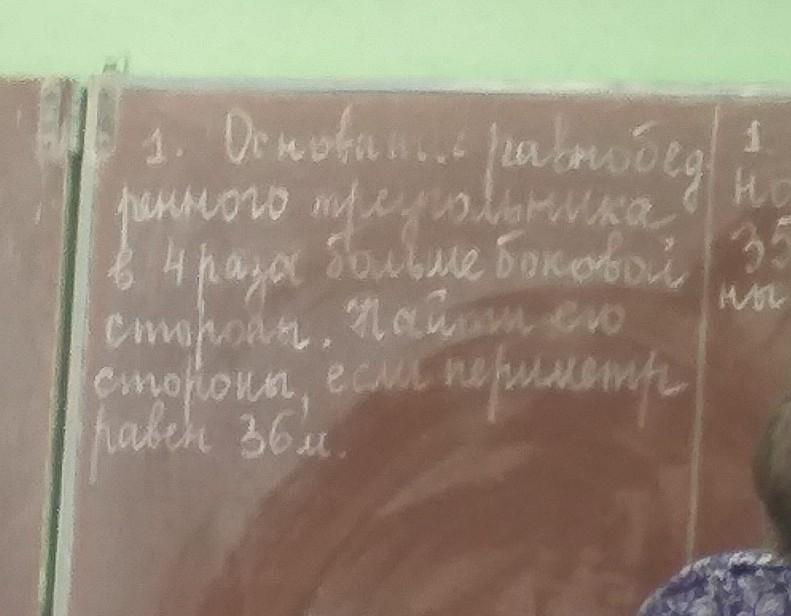 1. Основание равнобед
ренного треугольника
в 4 раза больше боковой
стороны. Найти его
стороны, если периметр
равен 36 м.
1.
но
35
ны